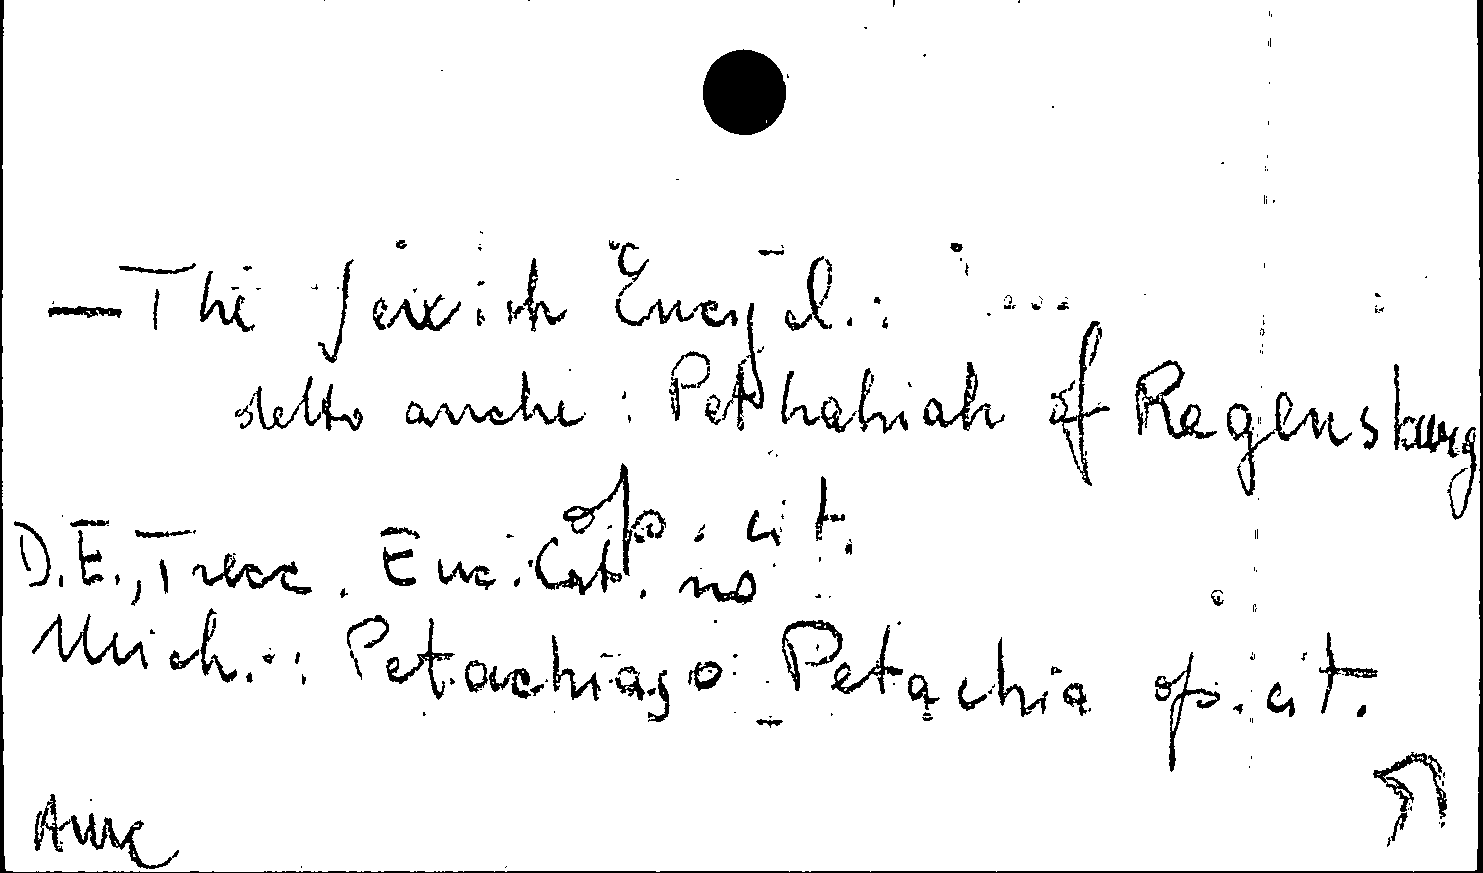 – The Jewish Encycl.: ...
detto anche : Pethahiah of Regensburg
op. cit.
D.E., Trecc. Enc. Cat. no
Mich.: Petachia, o Petachia op. cit.